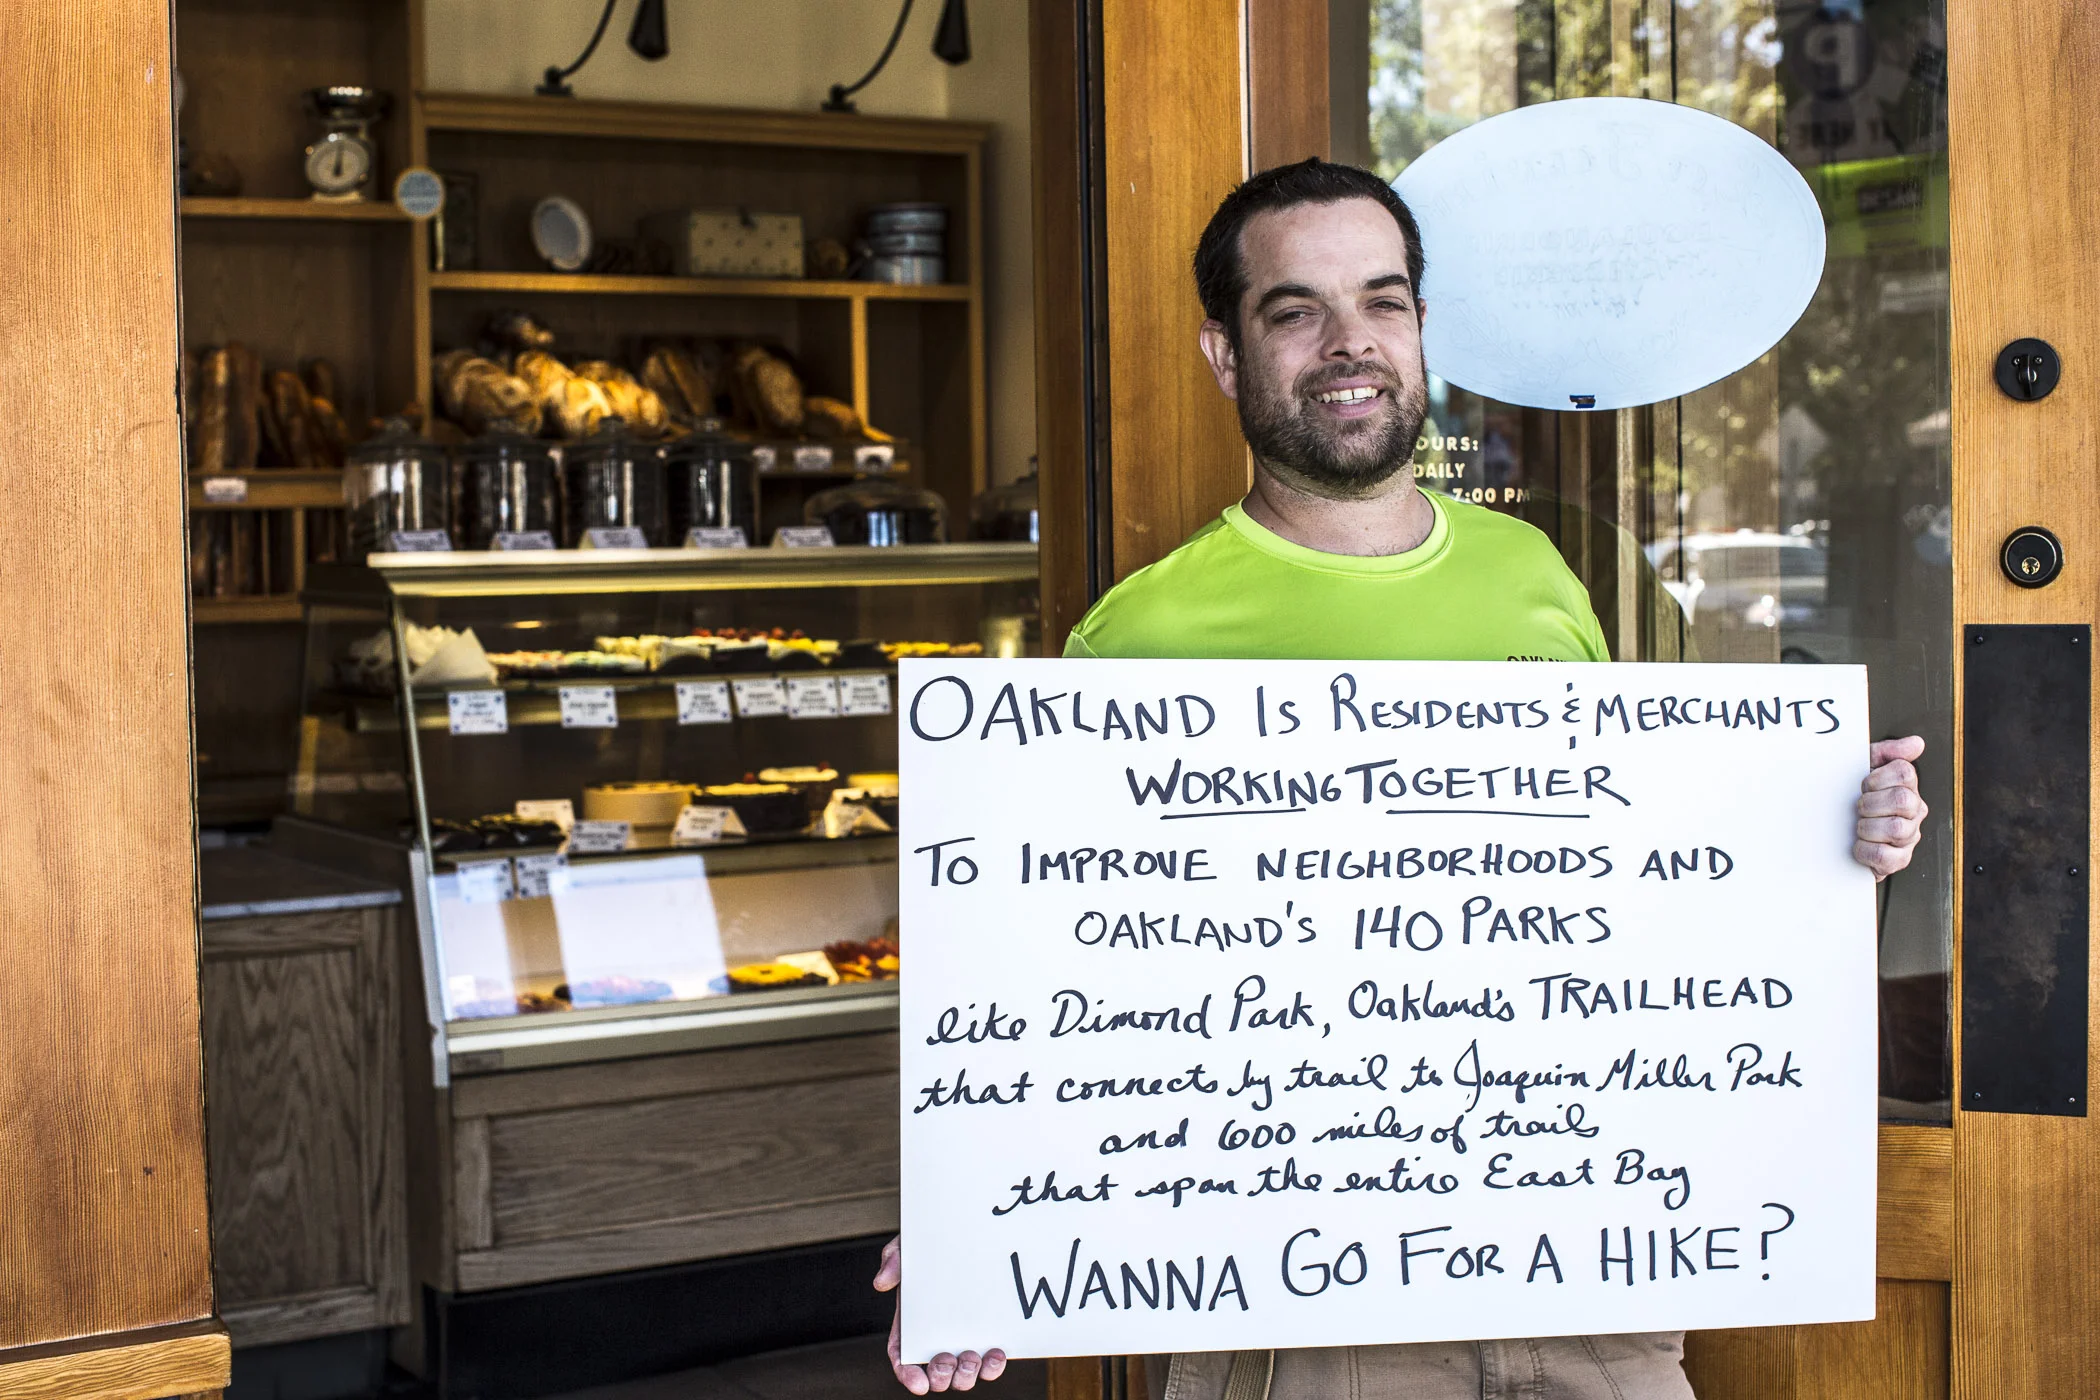 OURS:
DAILY
7:00 PM
OAKLAND IS RESIDENTS & MERCHANTS
WORKING TOGETHER
TO IMPROVE NEIGHBORHOODS AND
OAKLAND'S 140 PARKS
like Dimond Park, Oakland's TRAILHEAD
that connects by trail to Joaquin Miller Park
and 600 miles of trails
that span the entire East Bay
WANNA GO FOR A HIKE?